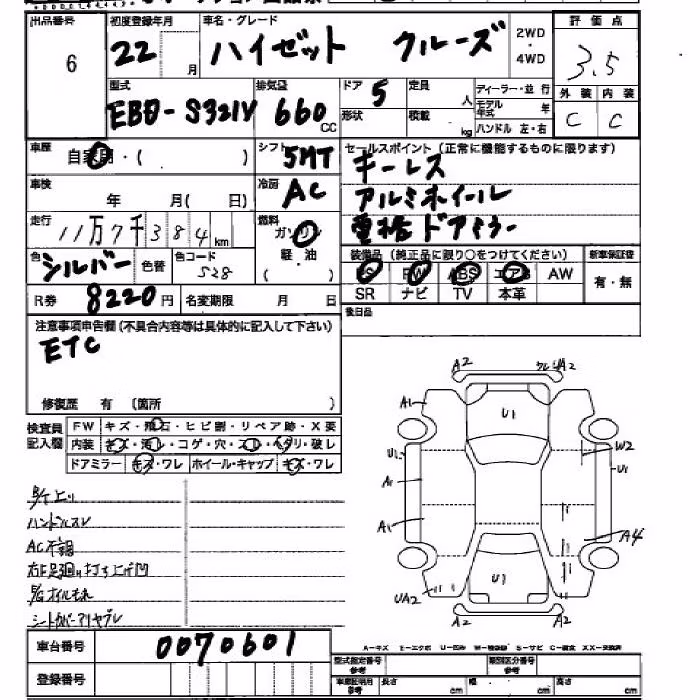 出品番号 初度登録年月 車名・グレード 2WD・4WD 評価点
6 22 月 ハイゼット クルーズ 3.5
型式 排気量 ドア 定員 ディーラー・並行 外装 内装
EBD-S321V 660 CC 5 人 モデル年式 年 C C
形状 積載 kg ハンドル 左・右
車歴 自家用・( ) シフト 5MT セールスポイント(正常に機能するものに限ります)
キーレス
車検 年 月( 日) 冷房 AC アルミホイール
走行 11万7千384km 燃料 ガソリン 電格ドアミラー
軽・油
( )
色 シルバー 色替 色コード S28 装備品(純正品に限り○をつけてください) 新車保証書
PS PW ABS エアB AW 有・無
R券 8220円 名変期限 月 日 SR ナビ TV 本革
注意事項申告欄(不具合内容等は具体的に記入して下さい) 後日品
ETC
修復歴 有 (箇所 )
検査員記入欄 FW キズ・飛石・ヒビ割・リペア跡・X要
内装 キズ・汚レ・コゲ・穴・スレ・ヘタリ・破レ
ドアミラー キズ・ワレ ホイール・キャップ キズ・ワレ
ハンドルスレ
AC不調
右F足廻り打ち上げ凹
シートカバーアリヤブレ
A2 A2
A1 U1 W2
U1 U1
A1
A1 A4
UA2 U1
A2 A2
車台番号 0070601
登録番号
A−キズ E−エクボ U−凹ミ S−サビ C−腐食 XX−交換済
型式指定番号 参考 類別区分番号 参考
車庫証明用 参考 長さ cm 幅 cm 高さ cm